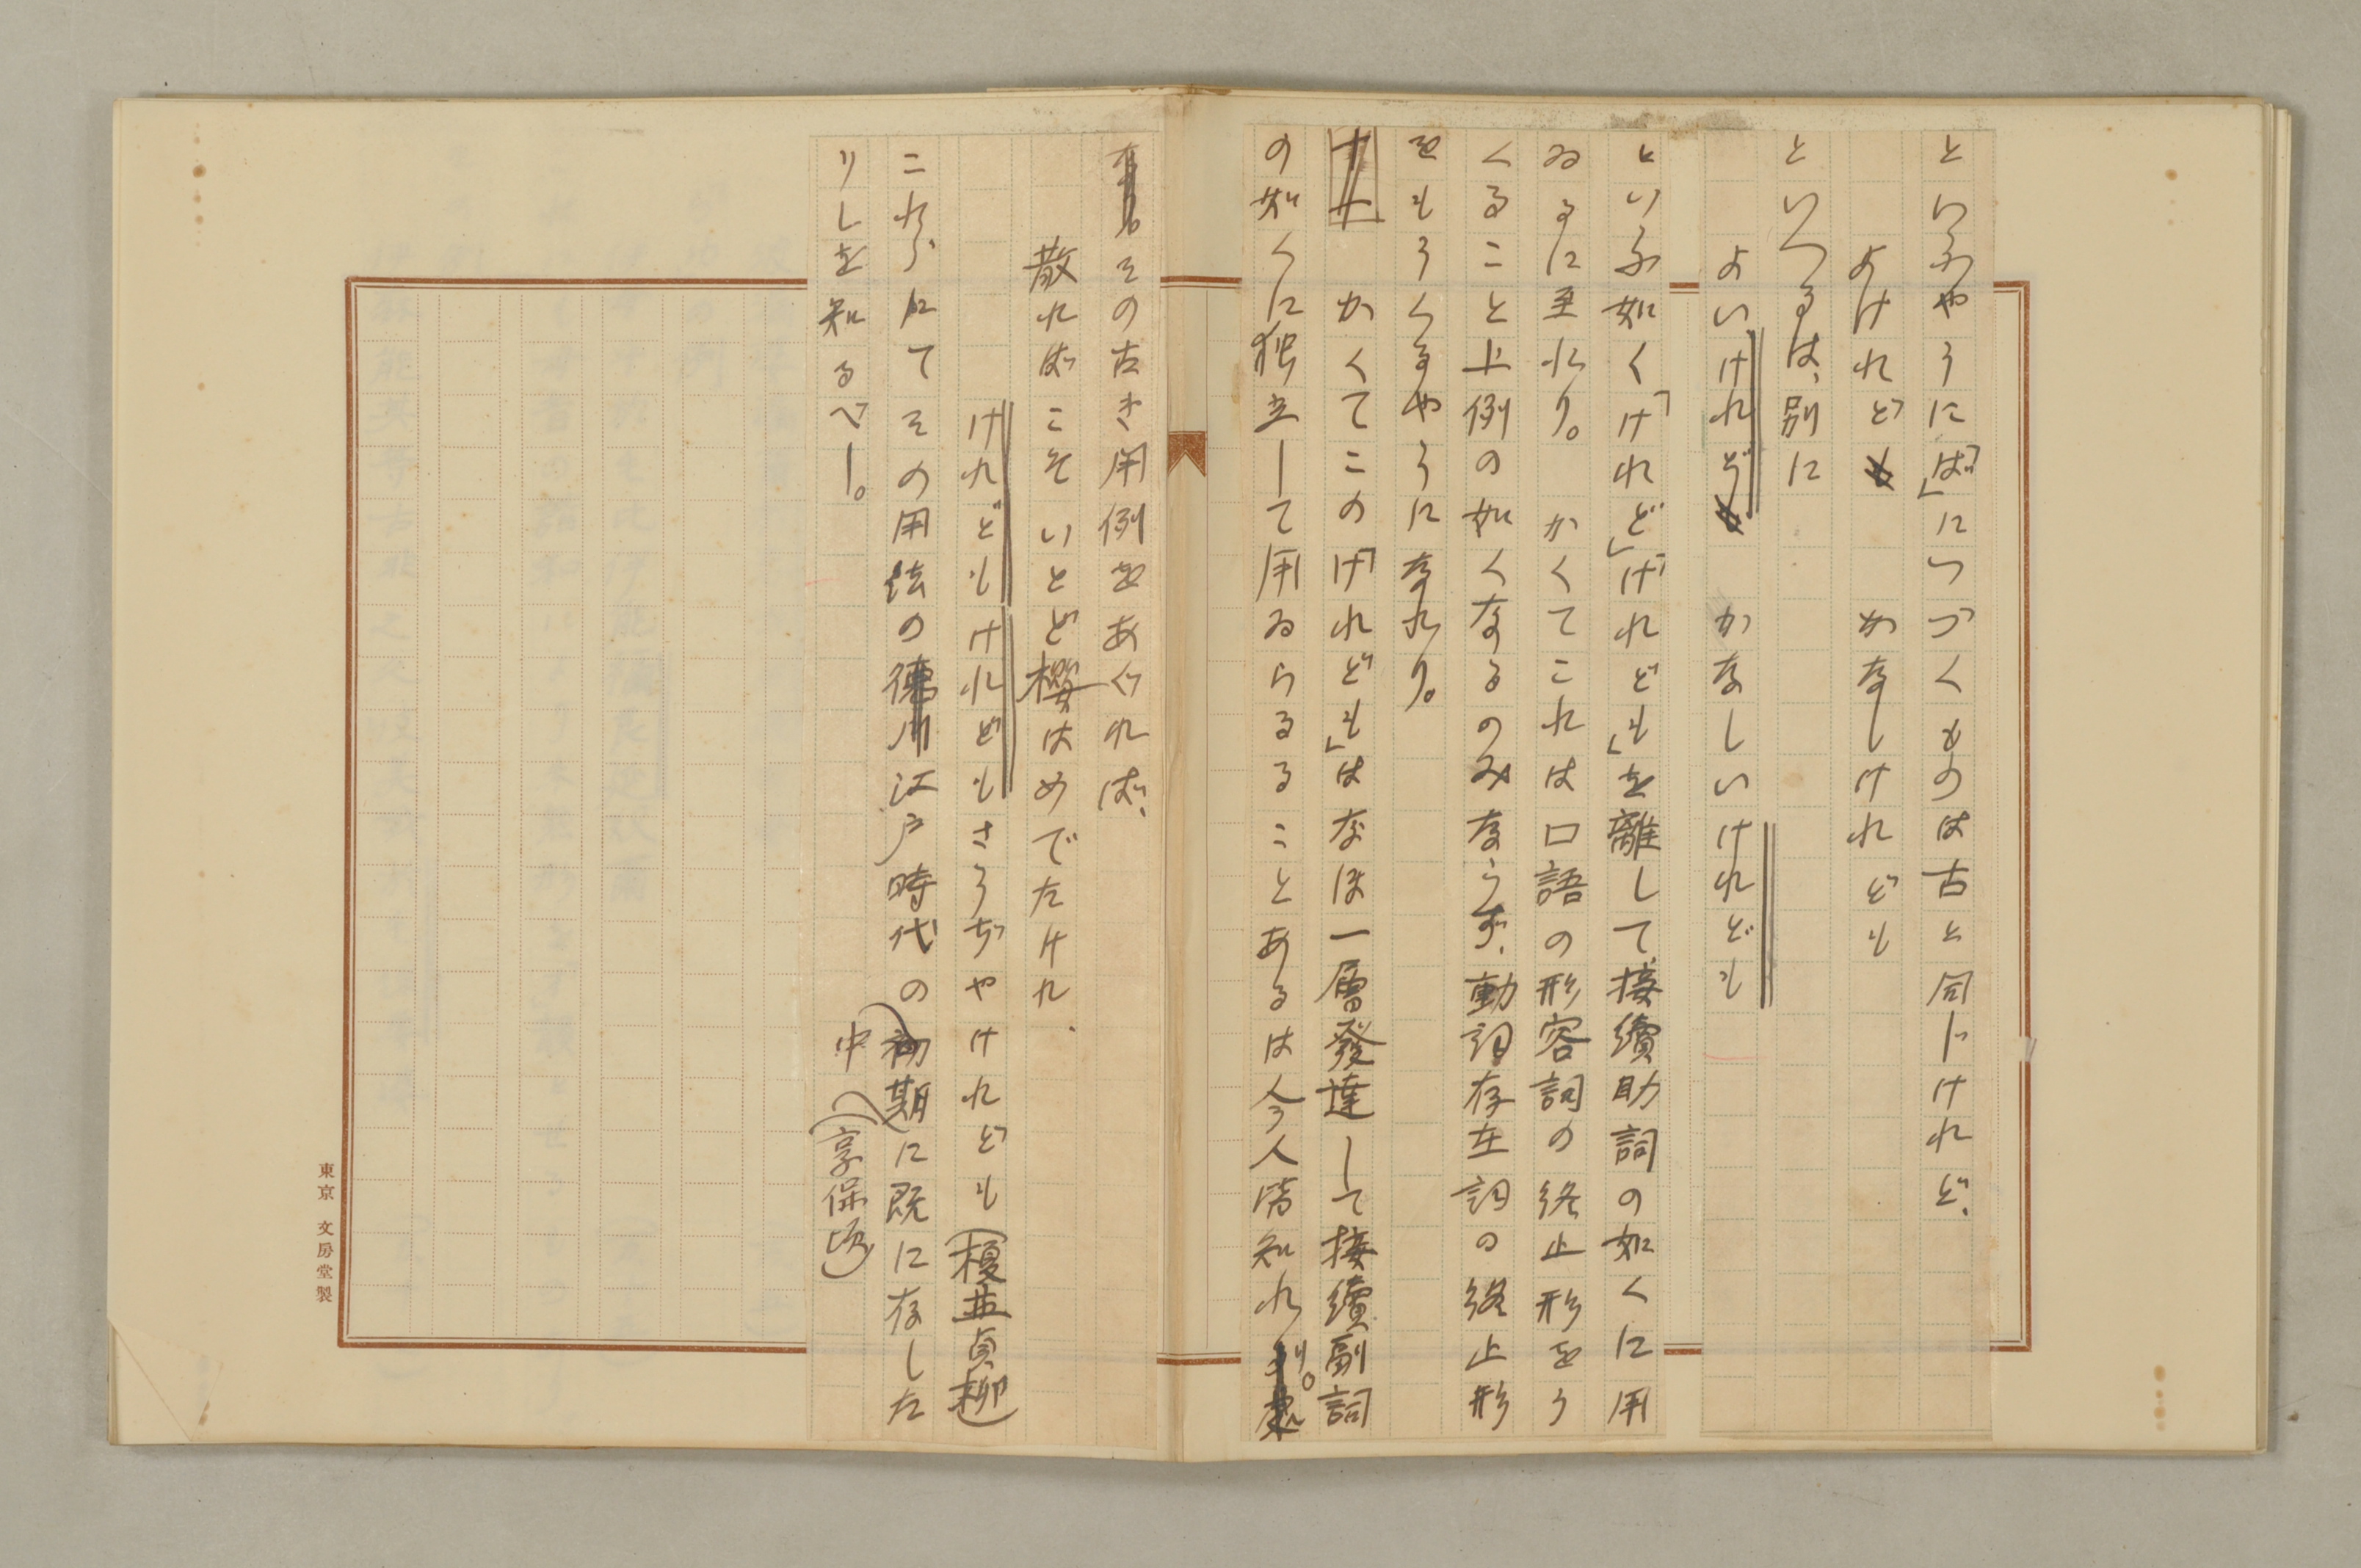 といふやうに「ば」につづくものは古と同じけれど、
よけれども　かなしけれども
といへるは、別に
よいけれども　かなしいけれども
といふ如く「けれど」「けれども」を離して接續助詞の如くに用
ゐるに至れり。かくてこれは口語の形容詞の終止形をう
くること上例の如くなるのみならず、動詞存在詞の終止形
をもうくるやうになれり。
かくてこの「けれども」はなほ一層發達して接續副詞
の如くに独立して用ゐらるることあるは今人皆知れり。
その古き用例をあぐれば、
散ればこそいとど櫻はめでたけれ、
けれどもけれどもさうぢやけれども（榎並貞柳）
これらにてその用法の江戸時代の初期に既に存した
中（享保頃）
りしを知るべし。
東京　文房堂製